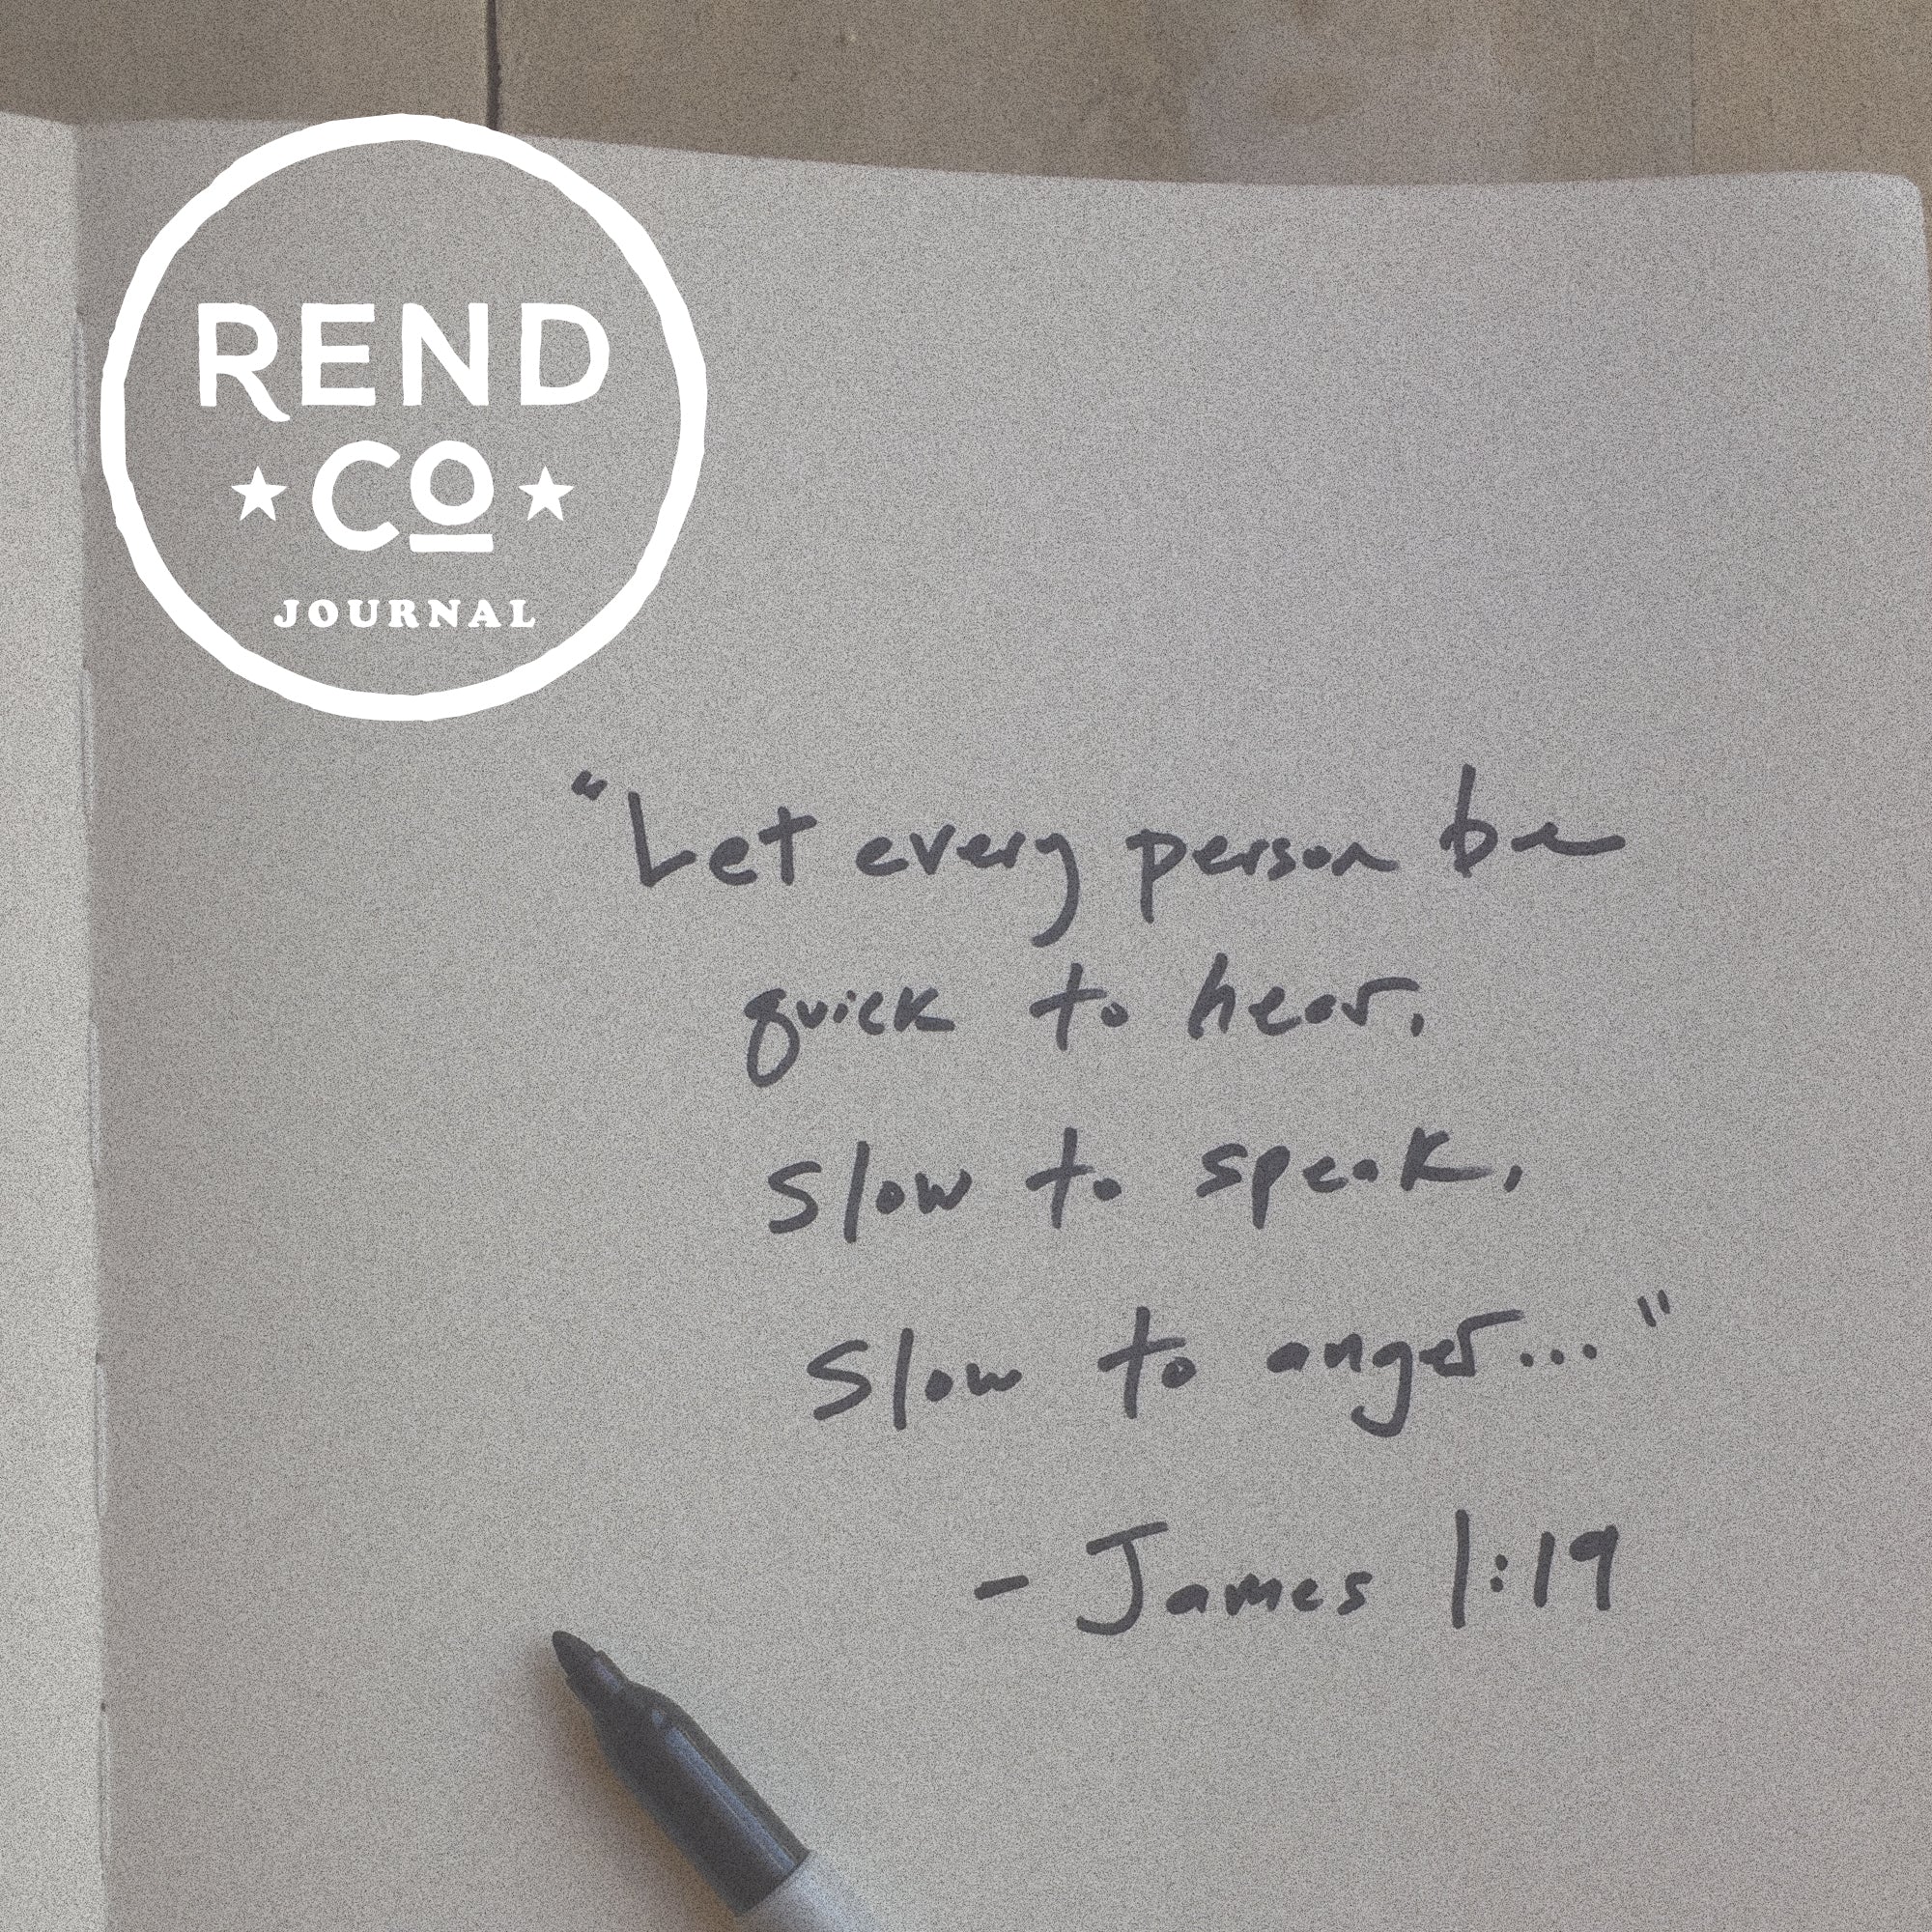 REND
★ CO ★
JOURNAL
"Let every person be
quick to hear,
slow to speak,
slow to anger..."
- James 1:19